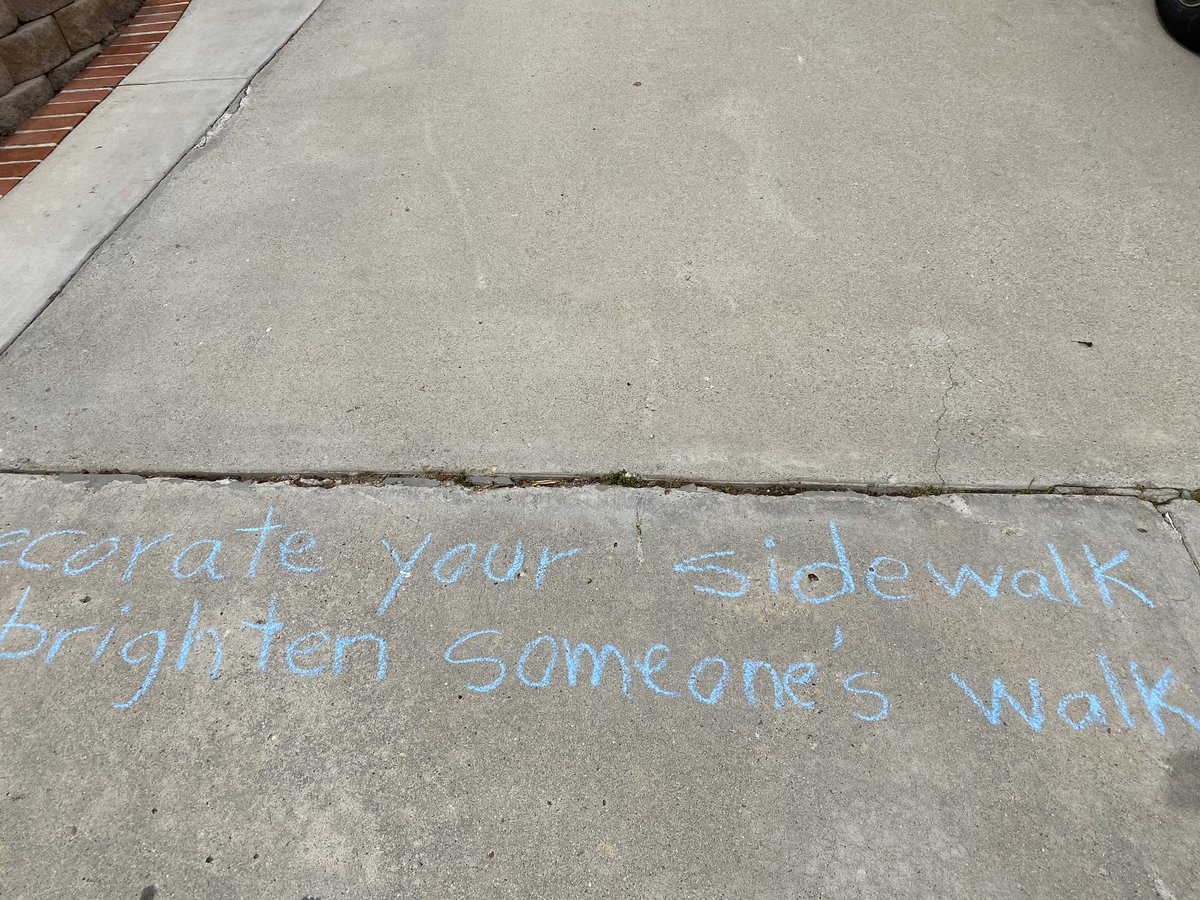 ecorate your sidewalk
brighten someone's walk